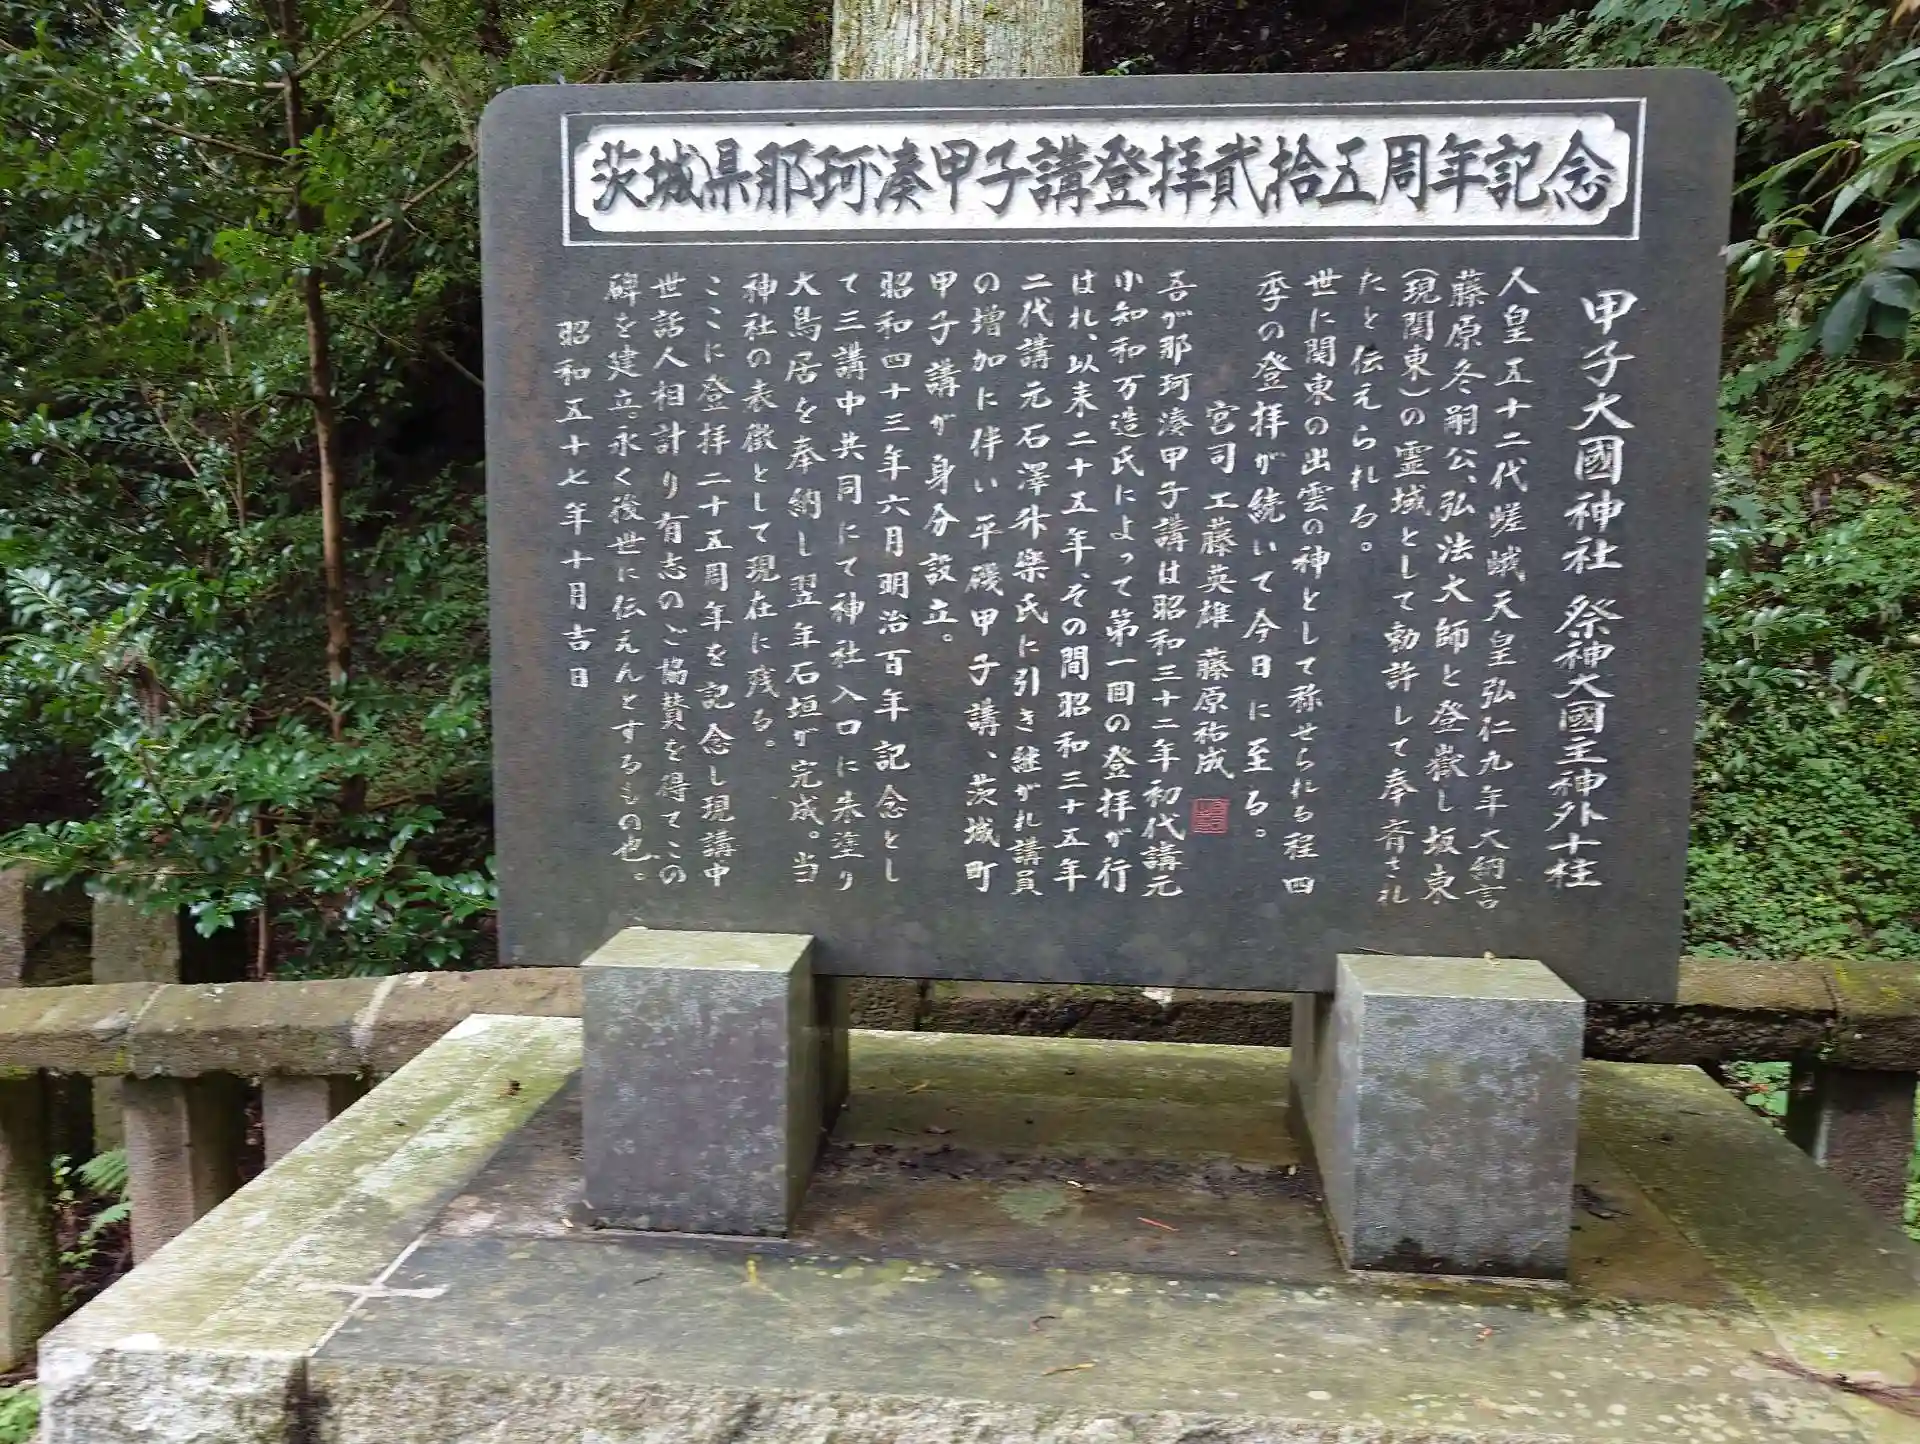 茨城県那珂湊甲子講登拝貳拾五周年記念
甲子大國神社 祭神大國主神外十柱
人皇五十二代嵯峨天皇弘仁九年大納言
藤原冬嗣公、弘法大師と登嶽し坂東
(現関東)の霊域として勅許して奉斎され
たと伝えられる。
世に関東の出雲の神として称せられる程四
季の登拝が続いて今日に至る。
宮司 工藤英雄 藤原祐成
吾が那珂湊甲子講は昭和三十二年初代講元
小知和万造氏によって第一回の登拝が行
はれ、以来二十五年、その間昭和三十五年
二代講元石澤外樂氏に引き継がれ講員
の増加に伴い平磯甲子講、茨城町
甲子講が身分設立。
昭和四十三年六月明治百年記念とし
て三講中共同にて神社入口に朱塗り
大鳥居を奉納し翌年石垣が完成。当
神社の表徴として現在に残る。
ここに登拝二十五周年を記念し現講中
世話人相計り有志のご協賛を得てこの
碑を建立。永く後世に伝えんとするもの也。
昭和五十七年十月吉日